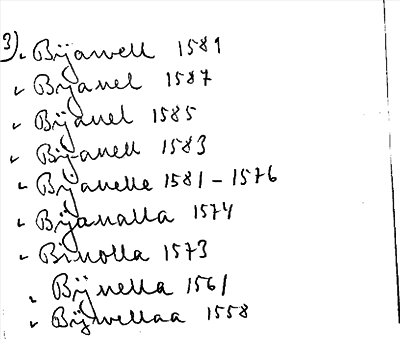 3) Bijawell 1589
Bijanel 1587
Bijanel 1585
Bijanell 1583
Bijanelle 1581 - 1576
Bijanalla 1574
Binolla 1573
Bijnella 1561
Bijwellaa 1558